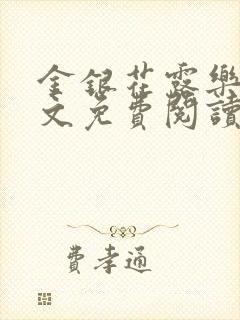 金銀花露樂
文免費閱讀
費孝通